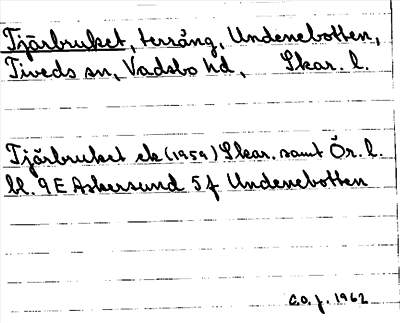 Tjärbruket, terräng, Undenebotten,
Tiveds sn, Vadsbo hd, Skar. l.
Tjärbruket ek (1959) Skar. samt Ör. l.
bl. 9E Askersund 5 f Undenebotten
C.O.J. 1962